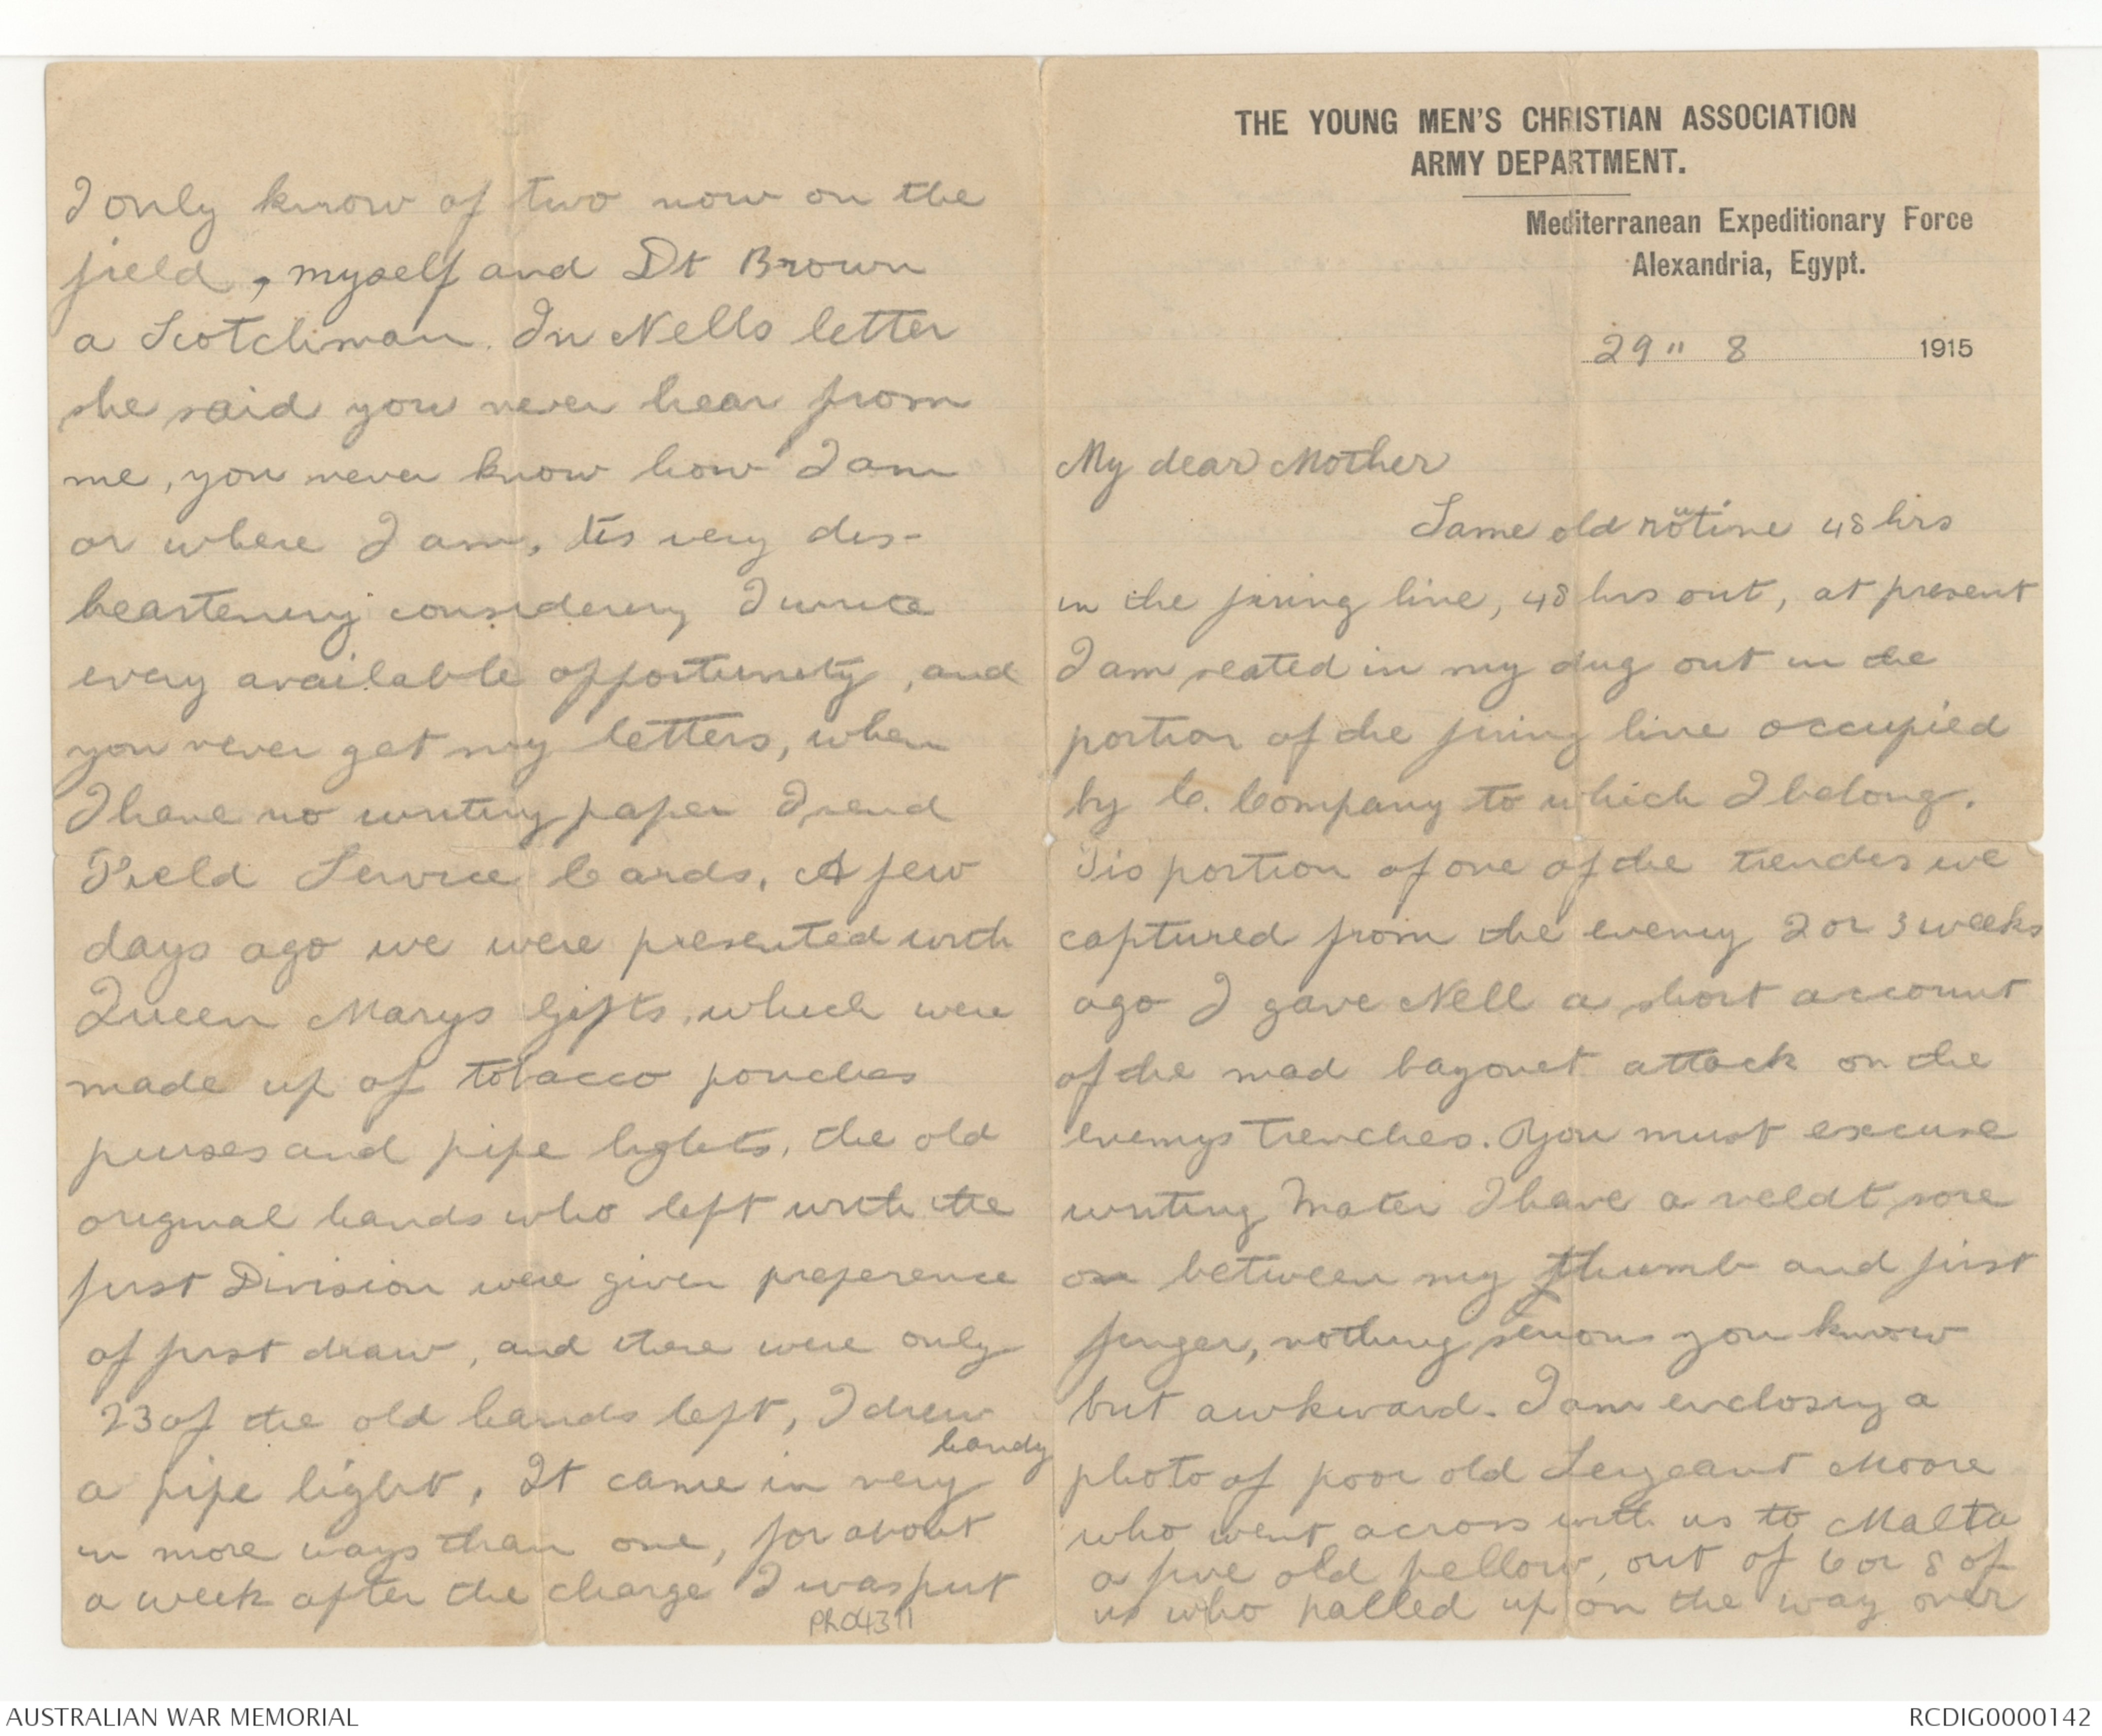 THE YOUNG MEN'S CHRISTIAN ASSOCIATION
ARMY DEPARTMENT.
Mediterranean Expeditionary Force
Alexandria, Egypt.
29 " 8 1915
My dear Mother
Same old routine 48 hrs
in the firing line, 48 hrs out, at present
I am seated in my dug out in the
portion of the firing line occupied
by C. Company to which I belong.
Tis portion of one of the trenches we
captured from the enemy 2 or 3 weeks
ago I gave Nell a short account
of the mad bayonet attack on the
enemys trenches. You must excuse
writing Mater I have a veldt sore
on between my thumb and first
finger, nothing serious you know
but awkward. I am enclosing a
photo of poor old Sergeant Moore
who went across with us to Malta
a fine old fellow, out of 6 or 8 of
us who palled up on the way over
I only know of two now on the
field, myself and Dt Brown
a Scotchman. In Nells letter
she said you never hear from
me, you never know how I am
or where I am, tis very dis-
heartening considering I write
every available opportunity, and
you never get my letters, when
I have no writing paper I send
Field Service Cards, A few
days ago we were presented with
Queen Marys Gifts, which were
made up of tobacco pouches
purses and pipe lights, the old
original hands who left with the
first Division were given preference
of first draw, and there were only
23 of the old hands left, I drew
a pipe light, It came in very handy
in more ways than one, for about
a week after the charge I was put
PR04311
AUSTRALIAN WAR MEMORIAL
RCDIG0000142